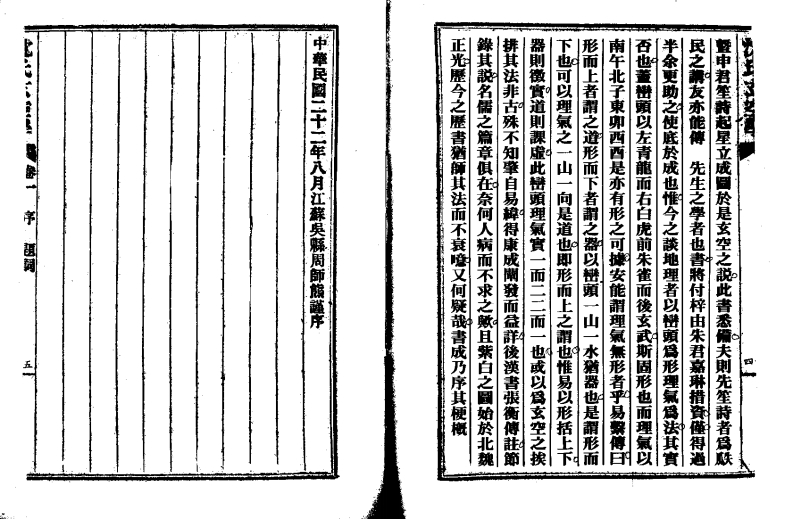 暨申君笙詩起星立成圖於是玄空之說此書悉備夫則先笙詩者爲畎
民之講友亦能傳　先生之學者也書將付梓由朱君嘉琳措資僅得過
半余更助之使底於成也惟今之談地理者以巒頭爲形理氣爲法其實
否也蓋巒頭以左青龍而右白虎前朱雀而後玄武斯固形也而理氣以
南午北子東卯西酉是亦有形之可據安能謂理氣無形者乎易繫傳曰
形而上者謂之道形而下者謂之器以巒頭一山一水猶器也是謂形而
下也可以理氣之一山一向是道也即形而上之謂也惟易以形括上下
器則徵實道則課虛此巒頭理氣實一而二二而一也或以爲玄空之挨
排其法非古殊不知肇自易緯得康成闡發而益詳後漢書張衡傳註節
錄其説名儒之篇章俱在奈何人病而不求之歟且紫白之圖始於北魏
正光歷今之歷書猶師其法而不衰噫又何疑哉書成乃序其梗概
四
中華民國二十二年八月江蘇吳縣周師熊謹序
卷一 序 題詞
五